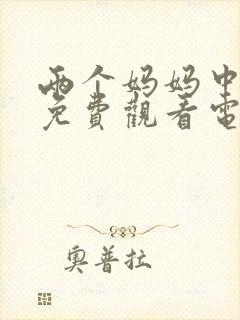 兩个妈妈中
免費觀看電
奥普拉